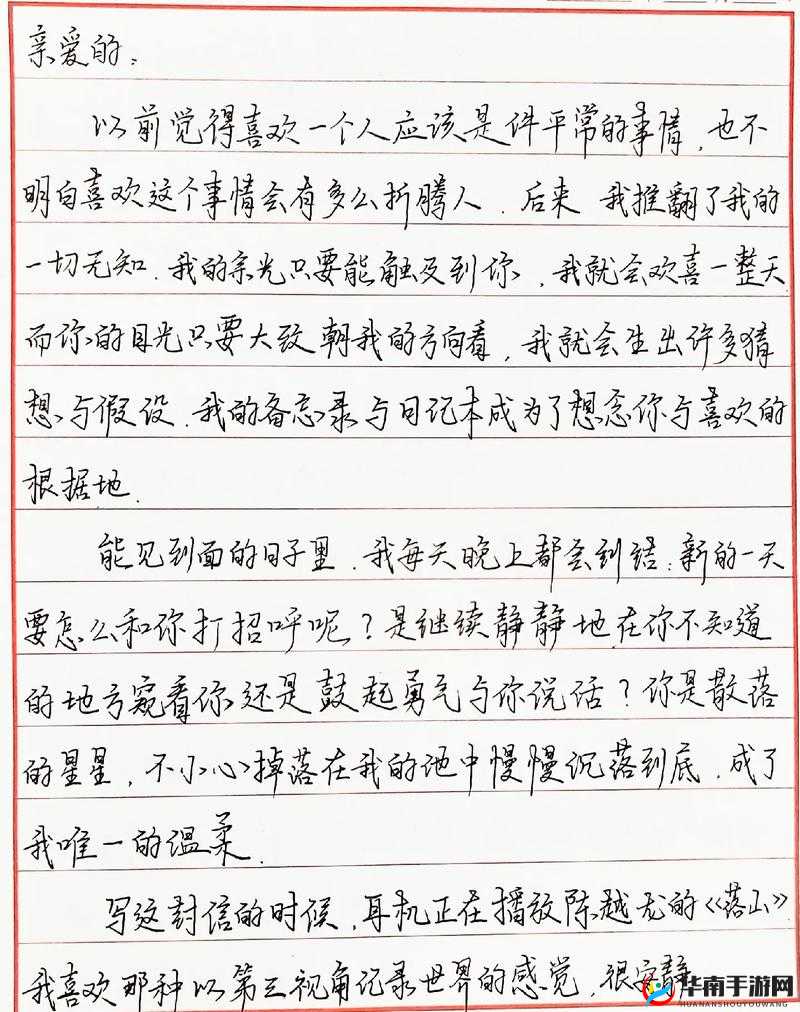 亲爱的：
以前觉得喜欢一个人应该是件平常的事情，也不
明白喜欢这个事情会有多么折腾人．后来 我推翻了我的
一切无知．我的余光只要能触及到你，我就会欢喜一整天
而你的目光只要大致朝我的方向看，我就会生出许多猜
想与假设．我的备忘录与日记本成为了想念你与喜欢的
根据地．
能见到面的日子里．我每天晚上都会纠结：新的一天
要怎么和你打招呼呢？是继续静静地在你不知道
的地方窥看你还是鼓起勇气与你说话？你是散落
的星星，不小心掉落在我的池中慢慢沉落到底．成了
我唯一的温柔．
写这封信的时候，耳机正在播放陈越龙的《落山》
我喜欢那种以第三视角记录世界的感觉，很安静
华南手游网
HUANANSHOUYOUWANG